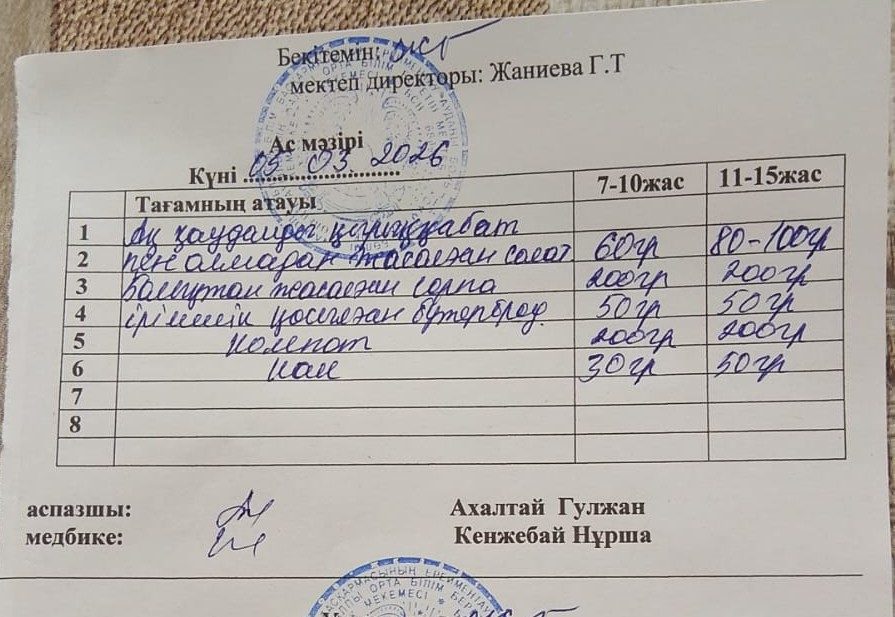 Бекітемін:
мектеп директоры: Жаниева Г.Т
Ас мәзірі
Күні 05 03 2026
Тағамның атауы 7-10жас 11-15жас
1 Ақ қауданды қырыққабат
2 пен алмадан жасалған салат 60гр 80-100гр
3 жасалған сорпа 200гр 200гр
4 ірімшік қосылған бутерброд. 50гр 50гр
5 Компот 200гр 200гр
6 Нан 30гр 50гр
7
8
аспазшы: Ахалтай Гулжан
медбике: Кенжебай Нұрша
БАСҚАРМАСЫНЫҢ ЕРЕЙМЕНТАУ
ОРТА БІЛІМ БЕР
МЕКЕМЕСІ